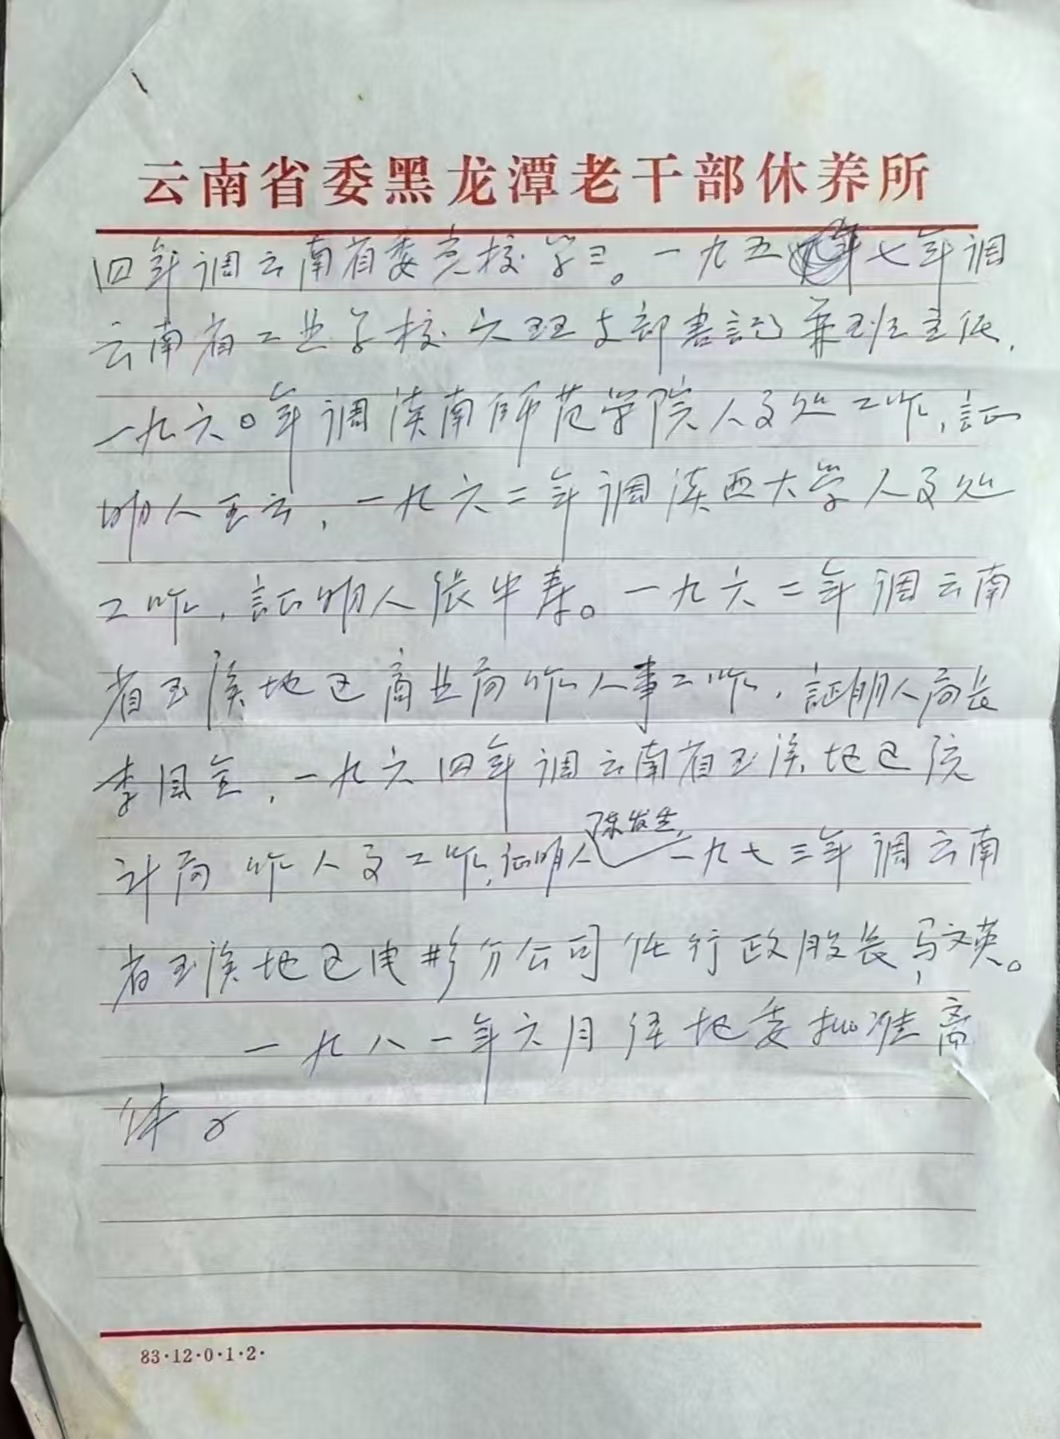 云南省委黑龙潭老干部休养所
四年调云南省委党校学习。一九五七年调
云南省工业学校 支部書記兼班主任,
一九六〇年调滇南师范学院人事处工作,証
明人王云,一九六二年调滇西大学人事处
工作,証明人張牛寿。一九六二年调云南
省玉溪地区商业局作人事工作,証明人局长
李国金,一九六四年调云南省玉溪地区统
计局作人事工作,证明人陈发生,一九七三年调云南
省玉溪地区电影分公司任行政股长,马文英。
一九八一年六月经地委批准离
休。
83·12·0·1·2·